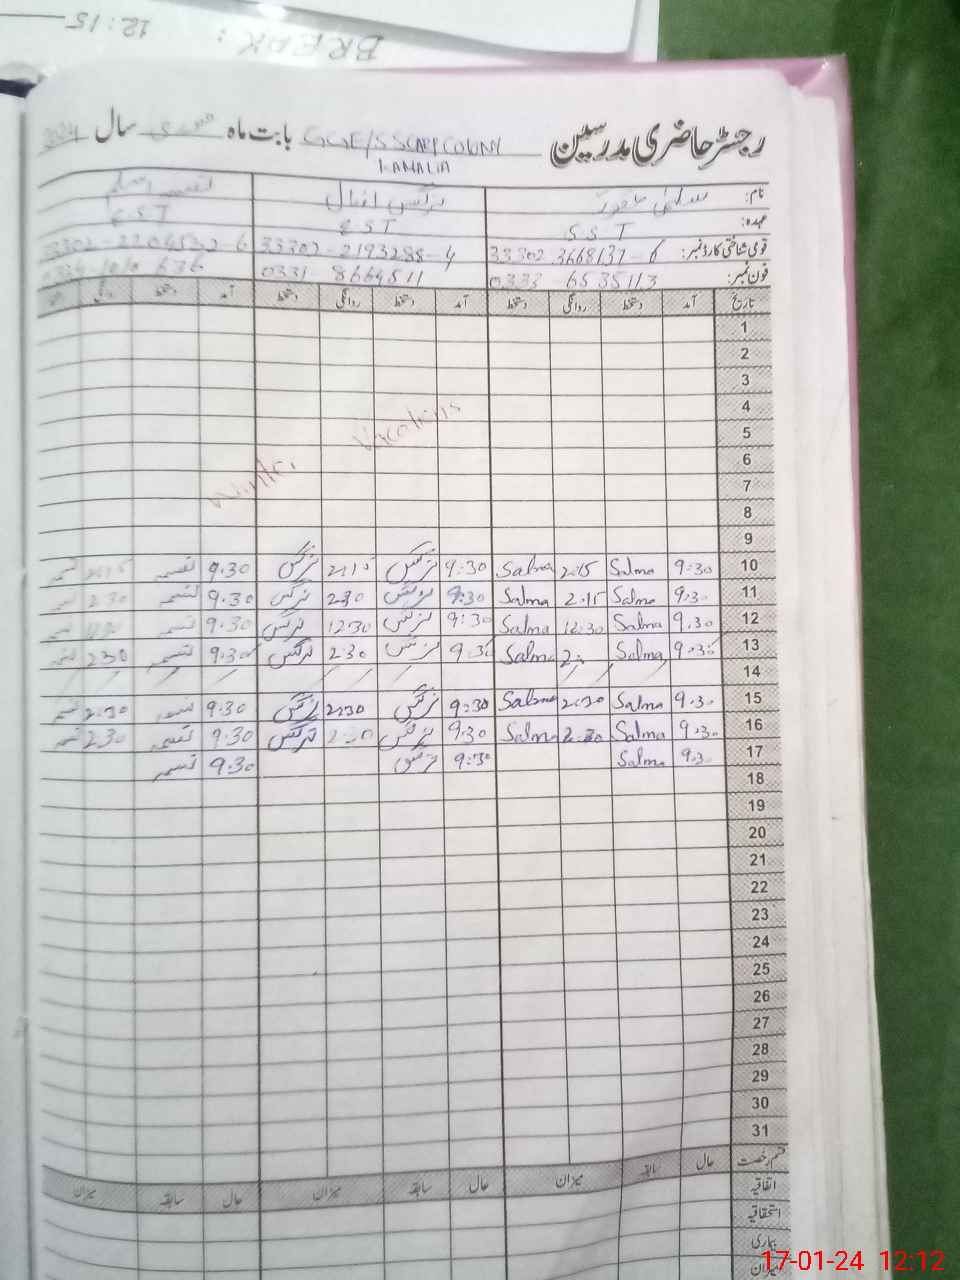 BREAK: 12:15
رجسٹر حاضری مدرسین GGE/S SCARP COLONY بابت ماہ جنوری سال 2024
KAMALIA
نام: سلمیٰ نرگس اقبال تسیم اسلم
عہدہ: S.S.T E.S.T E.S.T
قومی شناختی کارڈ نمبر: 33302-3668137-6 33302-2193288-4
فون نمبر: 0333-6535113 0331-8664511
تاریخ آمد دستخط روانگی دستخط آمد دستخط روانگی دستخط آمد دستخط
1
2
3
4
Vacations
5
6
Winter
7
8
9
10 9:30 Salma 2:15 Salma 9:30 نرگس 2:15 نرگس 9.30
11 9:30 Salma 2.15 Salma 9:30 نرگس 2:30 نرگس 9.30 2:30
12 9.30 Salma 12:30 Salma 9:30 نرگس 12:30 نرگس 9.30
13 9:30 Salma 2: Salma 9:30 نرگس 2:30 نرگس 9:30 2:30
14
15 9.30 Salma 2:30 Salma 9:30 نرگس 2:30 نرگس 9.30 2:30
16 9:30 Salma 2:30 Salma 9:30 نرگس 2:30 نرگس 9.30 2:30
17 9:30 Salma 9:30 نرگس 9:30
18
19
20
21
22
23
24
25
26
27
28
29
30
31
قسم رخصت حال سابقہ میزان حال سابقہ میزان حال سابقہ میزان
اتفاقیہ
استحقاقیہ
بیماری
میزان
17-01-24 12:12